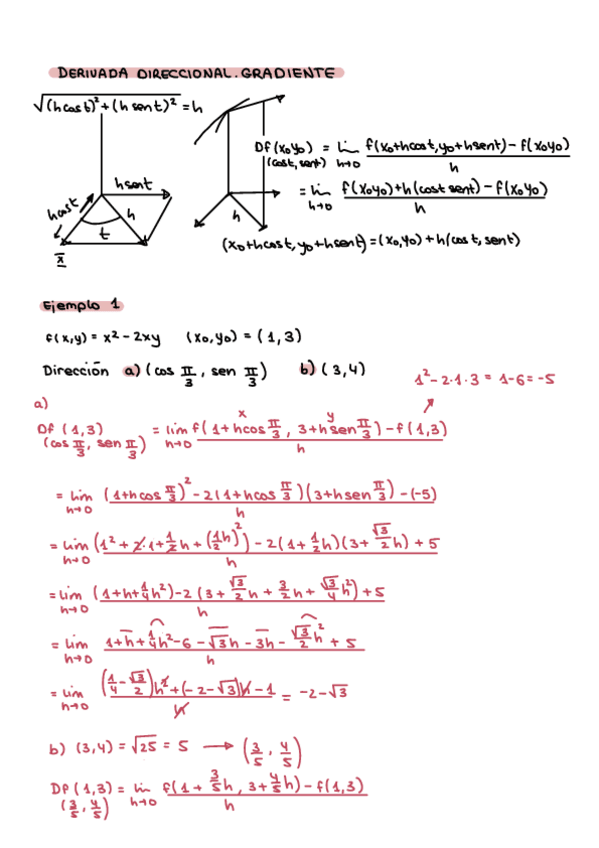 DERIVADA DIRECCIONAL. GRADIENTE
√((hcost)² + (h sent)²) = h
hsent
hcost
h
t
x̄
h
Df(x₀y₀) (cost, sent) = lim h→0 (f(x₀+hcost, y₀+hsent) - f(x₀y₀)) / h
= lim h→0 (f(x₀y₀) + h(cost sent) - f(x₀y₀)) / h
(x₀+hcost, y₀+hsent) = (x₀,y₀) + h(cost, sent)
Ejemplo 1
f(x,y) = x² - 2xy (x₀,y₀) = (1,3)
Dirección a) (cos π/3, sen π/3) b) (3,4)
1² - 2·1·3 = 1-6 = -5
a)
x y
Df (1,3) (cos π/3, sen π/3) = lim h→0 (f(1+hcos π/3, 3+hsen π/3) - f(1,3)) / h
= lim h→0 ((1+hcos π/3)² - 2(1+hcos π/3)(3+hsen π/3) - (-5)) / h
= lim h→0 ((1² + 2·1·1/2h + (1/2h)²) - 2(1+1/2h)(3+√3/2h) + 5) / h
= lim h→0 ((1+h+1/4h²) - 2(3+√3/2h + 3/2h + √3/4h²) + 5) / h
= lim h→0 (1+h+1/4h² - 6 - √3h - 3h - √3/2h² + 5) / h
= lim h→0 ((1/4 - √3/2)h² + (-2-√3)h - 1) / h = -2-√3
b) (3,4) = √25 = 5 → (3/5, 4/5)
Df (1,3) (3/5, 4/5) = lim h→0 (f(1+3/5h, 3+4/5h) - f(1,3)) / h